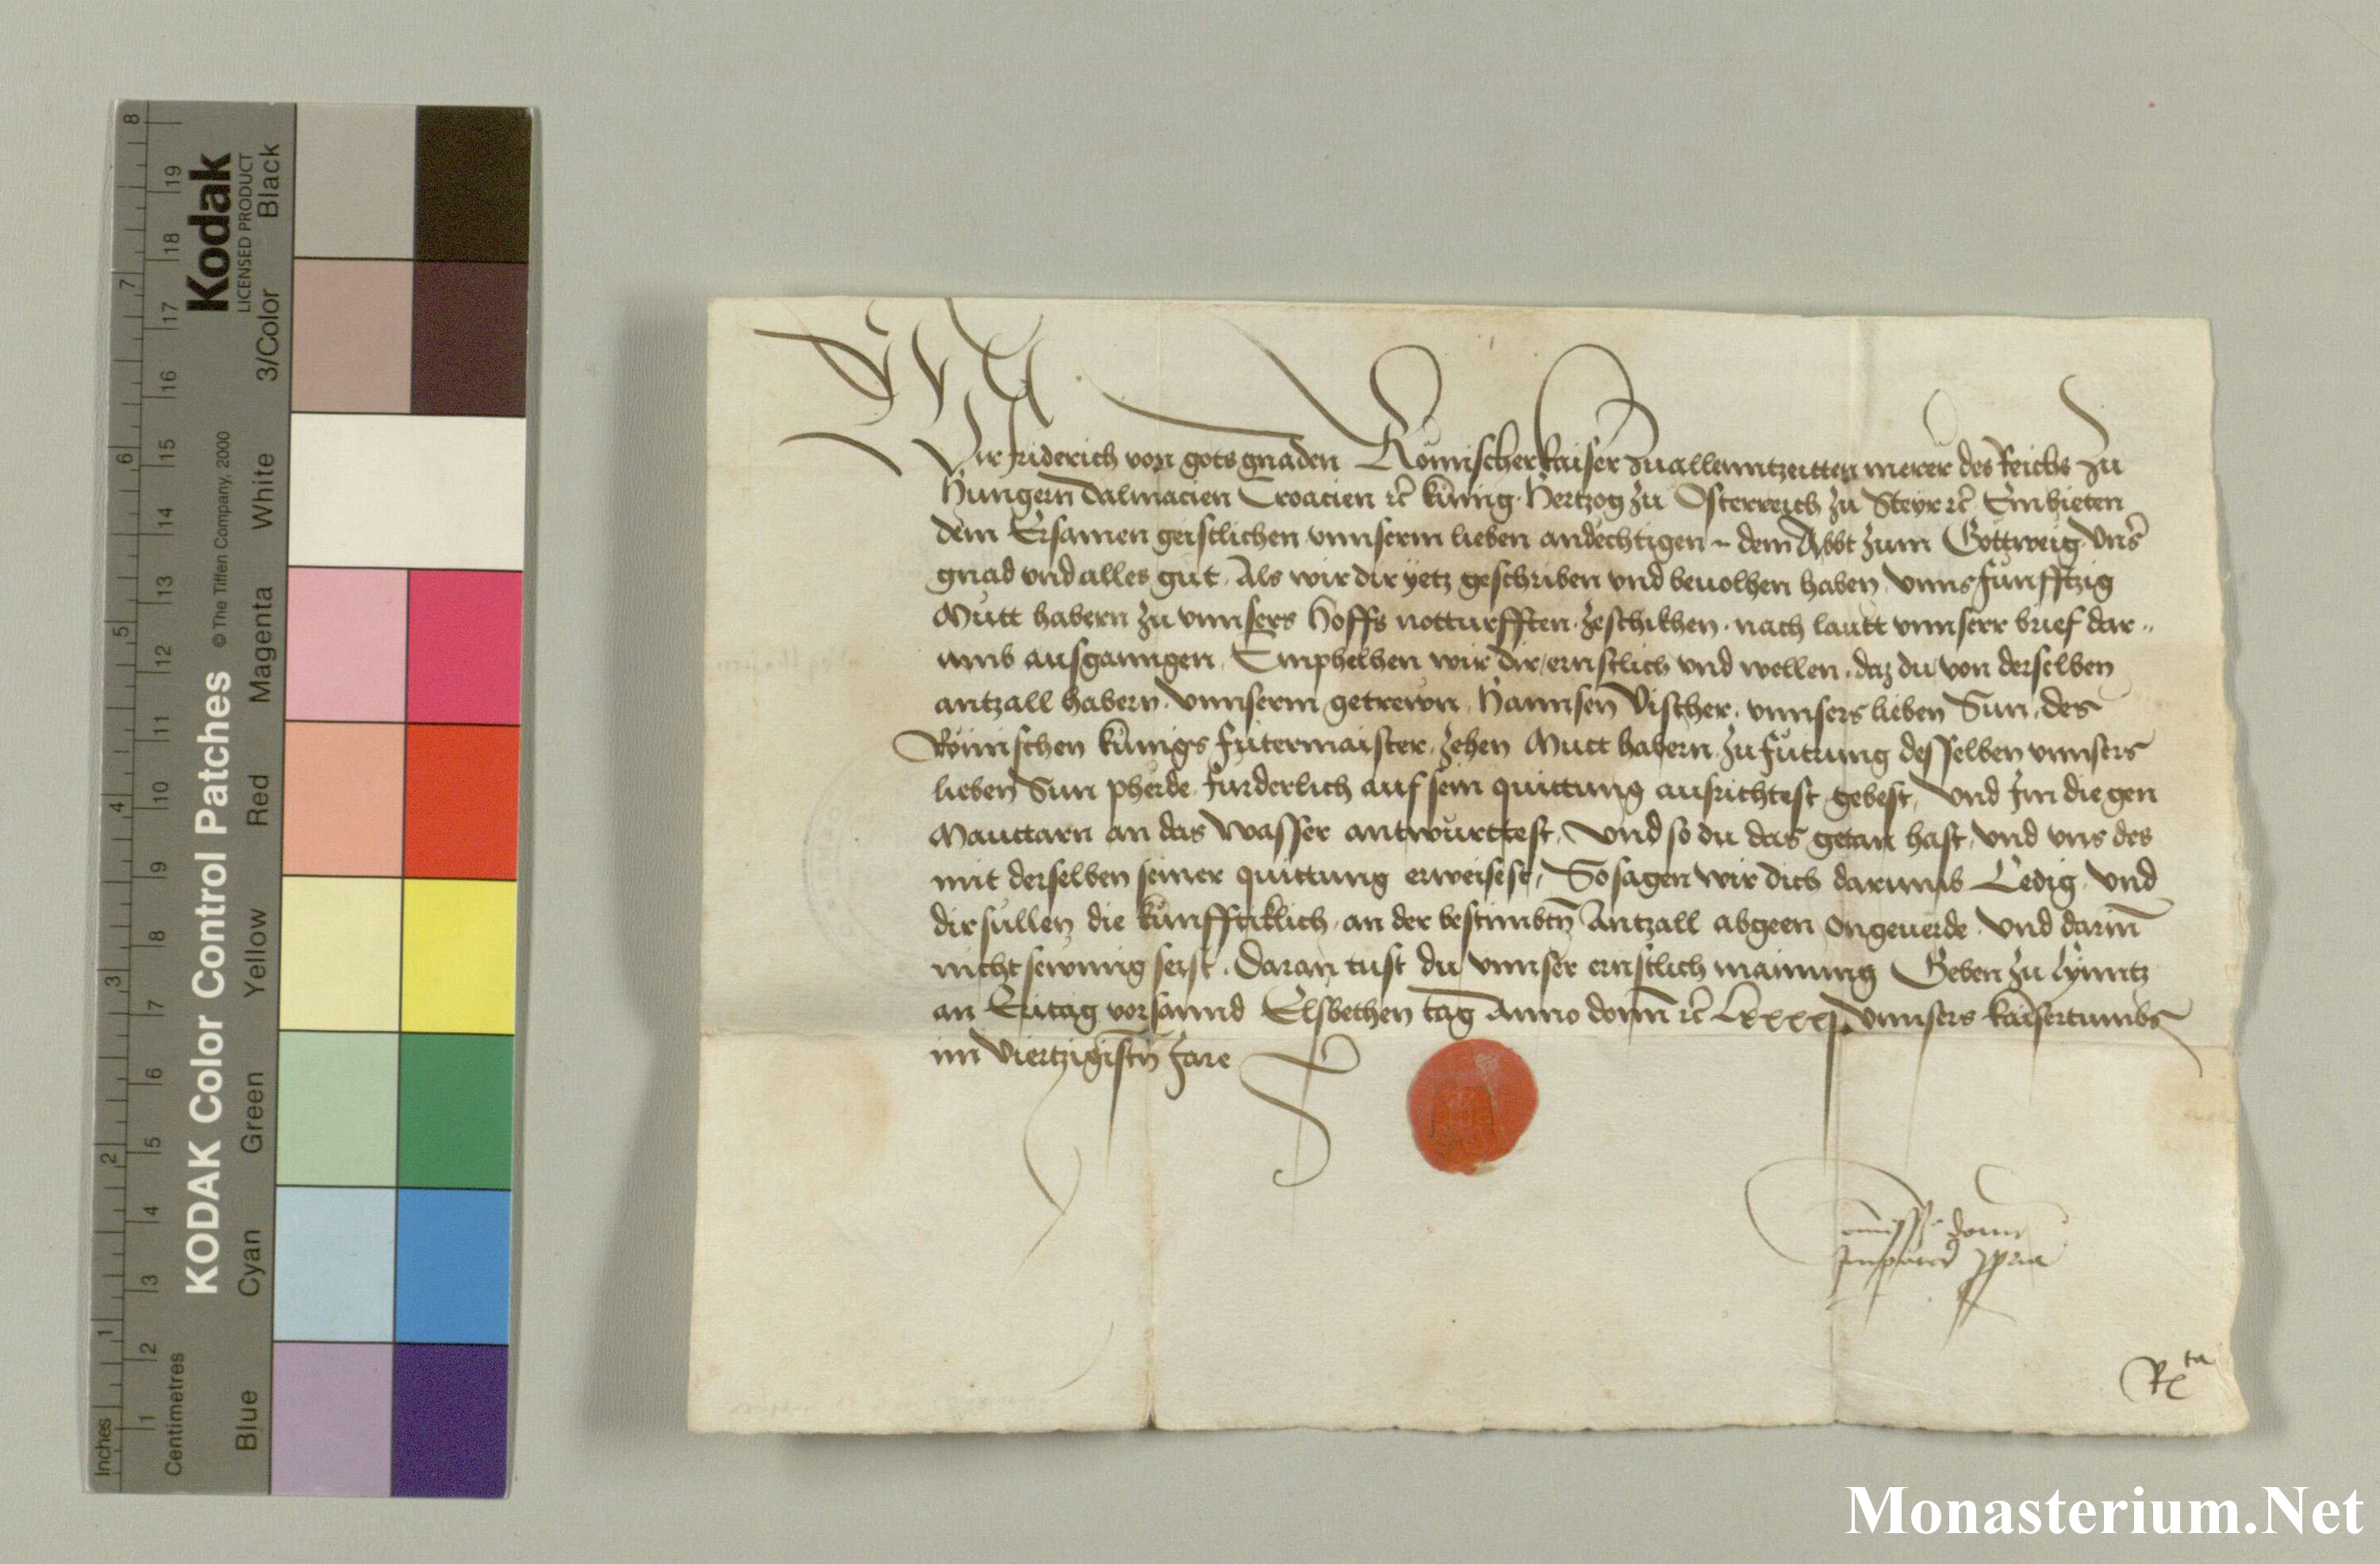 8
7
6
5
4
3
2
1
Inches
19
18
17
16
15
14
13
12
11
10
9
8
7
6
5
4
3
2
1
Centimetres
KODAK Color Control Patches
© The Tiffen Company, 2000
Kodak
LICENSED PRODUCT
Blue
Cyan
Green
Yellow
Red
Magenta
White
3/Color
Black
Wir Friderich von gots gnaden Römischer kaiser zuallenntzeitten merer des Reichs zu
Hungern Dalmacien Croacien ꝛc̄ künig Hertzog zu Österreich zu Steyr ꝛc̄ Embieten
dem Ersamen geistlichen vnnserm lieben andechtigen dem Abbt zum Göttweig vnser
gnad vnd alles güt. Als wir dir yetz geschriben vnd beuolhen haben vnns fünfftzig
Mütt habern zu vnnsers Hoffs notturfften zeschikhen nach lautt vnnserr brief dar
umb ausganngen Emphelhen wir dir ernstlich vnd wellen daz du von derselben
antzall habern vnnserm getrewn Hannsen Vischer vnnsers lieben Sun des
Römischen künigs fütermaister zehen Mutt habern zu fütrung desselben vnnsers
lieben Sun pherde fürderlich auf sein quittung ausrichtest gebest, vnd Im die gen
Mauttarn an das wasser antwürttest, vnd so du das getan hast, vnd vns des
mit derselben seiner quittung erweisest, So sagen wir dich darumb Ledig vnd
dir süllen die künfftiklich an der bestimbtn̄ Antzall abgeen ongeuerde vnd darin̄
nicht sewmig seist. Daran tust du vnnser ernstlich mainung Geben zu Lynntz
an Eritag vor sannd Elsbethen tag Anno domī ꝛc̄ Lxxxxj vnnsers kaisertumbs
im Viertzigistn̄ Jare
Commissio domini
Imperatoris propria
Rta
Monasterium.Net